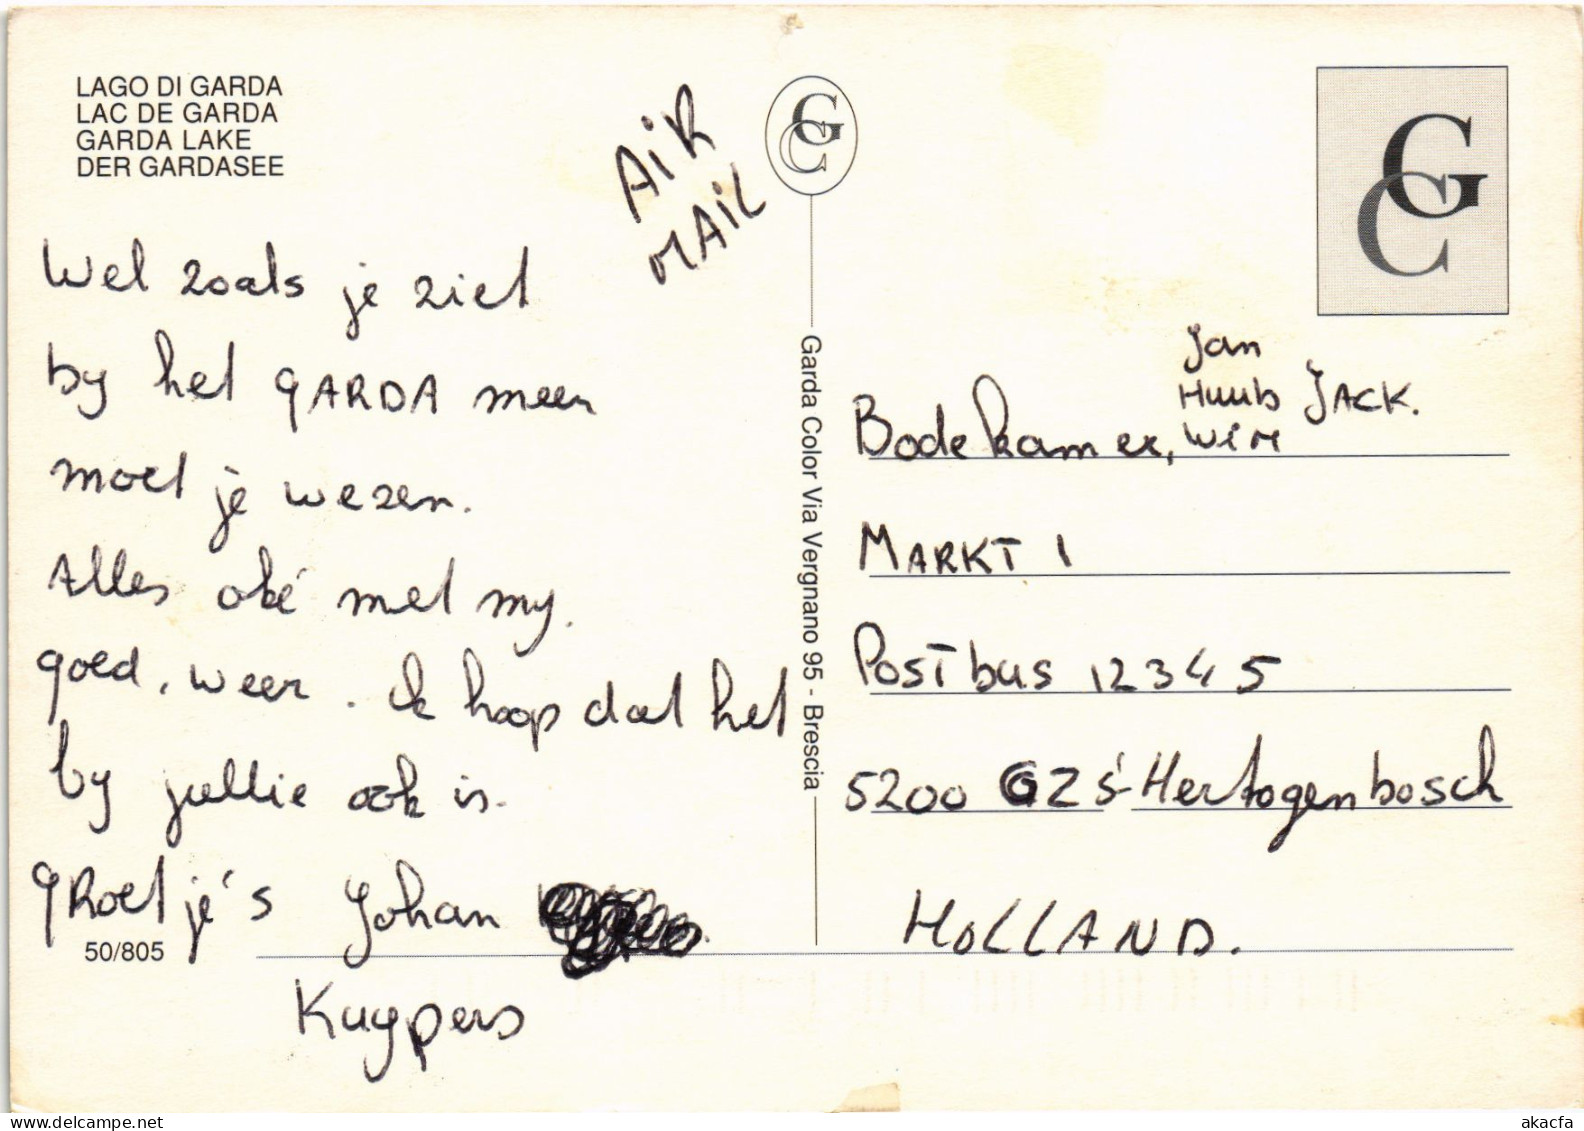 LAGO DI GARDA
LAC DE GARDA
GARDA LAKE
DER GARDASEE
AiR
MAiL
GC
GC
Wel zoals je ziet
by het GARDA meer
moet je wezen.
Alles oké met my.
goed, weer. ik hoop dat het
by jullie ook is.
GRoet je's Johan
Kuypers
50/805
Garda Color Via Vergnano 95 - Brescia
Jan
Huub JACK.
Bode Kamer, Wim
MARKT 1
Postbus 12345
5200 GZ s'-Hertogenbosch
HOLLAND.
www.delcampe.net
akacfa